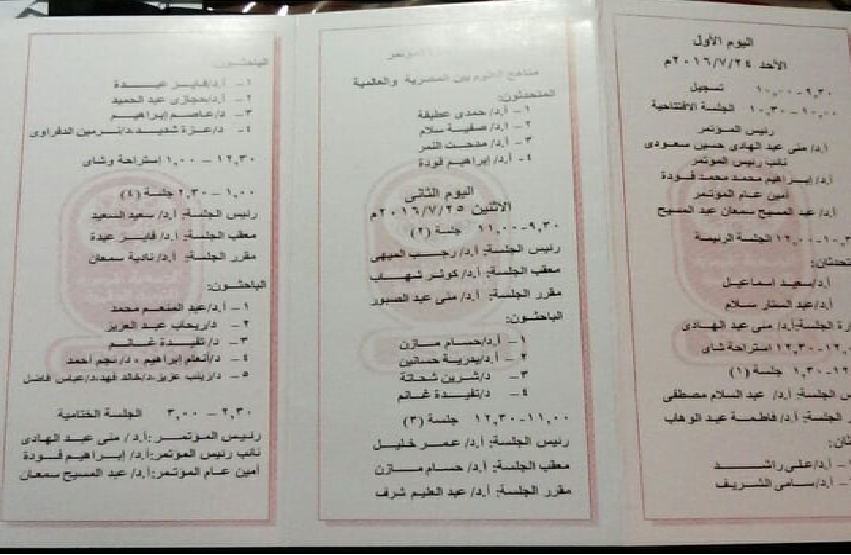 اليوم الأول
الأحد ٢٠١٦/٧/٢٤م
٩,٣٠-١٠,٠٠ تسجيل
١٠,٠٠-١٠,٣٠ الجلسة الافتتاحية
رئيس المؤتمر
أ.د/ منى عبد الهادى حسين سعودى
نائب رئيس المؤتمر
أ.د/ إبراهيم محمد محمد فودة
أمين عام المؤتمر
أ.د/ عبد المسيح سمعان عبد المسيح
١٢,٠٠ الجلسة الرئيسة
أ.د/سعيد اسماعيل
أ.د/عبد الستار سلام
الجلسة:أ.د/ منى عبد الهادى
١٢,٣٠ استراحة شاى
١,٣٠ جلسة (١)
الجلسة: أ.د/ عبد السلام مصطفى
الجلسة: أ.د/ فاطمة عبد الوهاب
أ.د/على راشد
أ.د/سامى الشريف
المؤتمر
مناهج العلوم بين المصرية والعالمية
المتحدثون:
١- أ.د/ حمدى عطيفة
٢- أ.د/ صفية سلام
٣- أ.د/ مدحت النمر
٤- أ.د/ إبراهيم فودة
اليوم الثانى
الاثنين ٢٠١٦/٧/٢٥م
٩,٣٠-١١,٠٠ جلسة (٢)
رئيس الجلسة: أ.د/ رجب الميهى
معقب الجلسة: أ.د/ كوثر شهاب
مقرر الجلسة: أ.د/ منى عبد الصبور
الباحثون:
١- أ.د/حسام مازن
٢- أ.د/بدرية حسانين
٣- د/شرين شحاتة
٤- د/تفيدة غانم
١١,٠٠-١٢,٣٠ جلسة (٣)
رئيس الجلسة: أ.د/ عمر خليل
معقب الجلسة: أ.د/ حسام مازن
مقرر الجلسة: أ.د/ عبد العليم شرف
الباحثون:
١- أ.د/فايز عبدة
٢- أ.د/حجازى عبد الحميد
٣- د/عاصم إبراهيم
٤- د/عزة شديد،د/نرمين الدفراوى
١٢,٣٠ – ١,٠٠ استراحة وشاى
١,٠٠ – ٢,٣٠ جلسة (٤)
رئيس الجلسة: أ.د/ سعيد السعيد
معقب الجلسة: أ.د/ فايز عبدة
مقرر الجلسة: أ.د/ نادية سمعان
الباحثون:
١- أ.د/عبد المنعم محمد
٢- د/ريحاب عبد العزيز
٣- د/ تفيدة غانم
٤- د/أنعام إبراهيم ، د/ نجم أحمد
٥- د/زينب عزيز،د/خالد فهد،د/عباس فاضل
٢,٣٠ – ٣,٠٠ الجلسة الختامية
رئيس المؤتمر:أ.د/ منى عبد الهادى
نائب رئيس المؤتمر:أ.د/ إبراهيم فودة
أمين عام المؤتمر:أ.د/ عبد المسيح سمعان